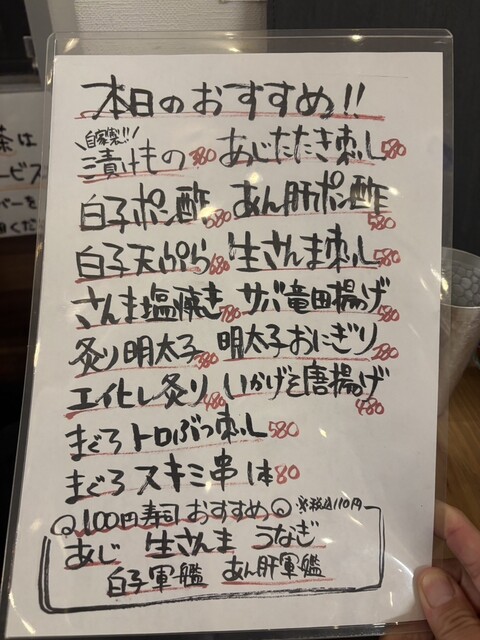 本日のおすすめ!!
自家製!!
漬けもの380 あじたたき刺し580
白子ポン酢680 あん肝ポン酢580
白子天ぷら680 生さんま刺し580
さんま塩焼き780 サバ竜田揚げ580
炙り明太子380 明太子おにぎり280
エイヒレ炙り480 いかげそ唐揚げ480
まぐろトロぶつ刺し580
まぐろスキミ串1本80
100円寿司おすすめ ※税込110円
あじ 生さんま うなぎ
白子軍艦 あん肝軍艦
茶は
ービス
バーを